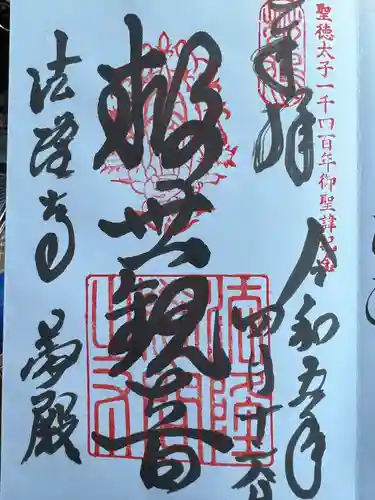 聖徳太子一千四百年御聖諱記念
奉拝
令和五年
四月
救世観音
法隆寺 夢殿